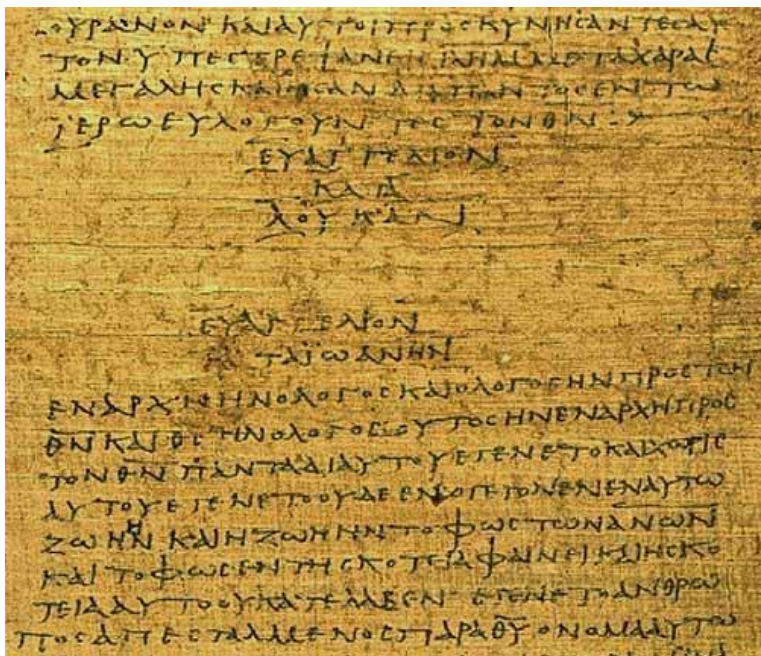 ΟΥΡΑΝΟΝ ΚΑΙ ΑΥΤΟΙ ΠΡΟΣΚΥΝΗϹΑΝΤΕϹ ΑΥ
ΤΟΝ ΥΠΕϹΤΡΕΨΑΝ ΕΙϹ ΙΗΛΗΜ ΜΕΤΑ ΧΑΡΑϹ
ΜΕΓΑΛΗϹ ΚΑΙ ΗϹΑΝ ΔΙΑ ΠΑΝΤΟϹ ΕΝ ΤΩ
ΪΕΡΩ ΕΥΛΟΓΟΥΝΤΕϹ ΤΟΝ Θ̅Ν̅
ΕΥΑΓΓΕΛΙΟΝ
ΚΑΤΑ
ΛΟΥΚΑΝ
ΕΥΑΓΓΕΛΙΟΝ
ΤΑ ΪΩΑΝΗΝ
ΕΝ ΑΡΧΗ ΗΝ Ο ΛΟΓΟϹ ΚΑΙ Ο ΛΟΓΟϹ ΗΝ ΠΡΟϹ ΤΟΝ
Θ̅Ν̅ ΚΑΙ Θ̅Ϲ̅ ΗΝ Ο ΛΟΓΟϹ ΟΥΤΟϹ ΗΝ ΕΝ ΑΡΧΗ ΠΡΟϹ
ΤΟΝ Θ̅Ν̅ ΠΑΝΤΑ ΔΙ ΑΥΤΟΥ ΕΓΕΝΕΤΟ ΚΑΙ ΧΩΡΙϹ
ΑΥΤΟΥ ΕΓΕΝΕΤΟ ΟΥΔΕ ΕΝ Ο ΓΕΓΟΝΕΝ ΕΝ ΑΥΤΩ
ΖΩΗ ΗΝ ΚΑΙ Η ΖΩΗ ΗΝ ΤΟ ΦΩϹ ΤΩΝ Α̅Ν̅Ω̅Ν̅
ΚΑΙ ΤΟ ΦΩϹ ΕΝ ΤΗ ϹΚΟΤΕΙΑ ΦΑΙΝΕΙ ΚΑΙ Η ϹΚΟ
ΤΕΙΑ ΑΥΤΟ ΟΥ ΚΑΤΕΛΑΒΕΝ ΕΓΕΝΕΤΟ ΑΝΘΡΩ
ΠΟϹ ΑΠΕϹΤΑΛΜΕΝΟϹ ΠΑΡΑ Θ̅Υ̅ ΟΝΟΜΑ ΑΥΤΩ